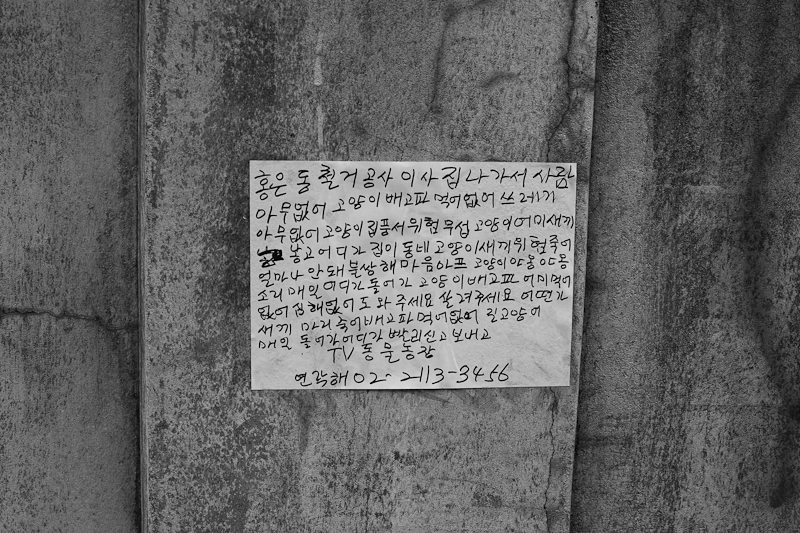 홍은동 철거 공사 이사 집 나가서 사람
아무없어 고양이 배고파 먹어없어 쓰레기
아무없어 고양이 집품서 위험 무섭 고양이 어미새끼
낳고 어디가 집이 동네 고양이 새끼 위험 죽어
얼마나 안돼 불상해 마음아프 고양이 야옹야옹
소리 매일 어디가 돌어가 고양이 배고파 어미 먹어
없어 집해 없어 도와 주세요 살려주세요 어떤가
새끼 마리 죽어 배고파 먹어없어 길고양이
매일 돌어가 어디가 빨리 신고 보내고
TV 동물농장
연락해 02-2113-3456